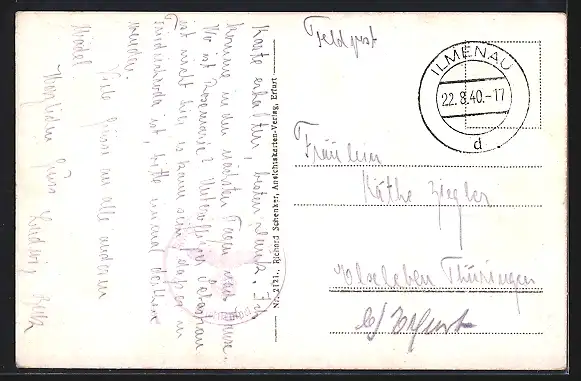 Karte erhalten, besten Dank. Ich
komme in den nächsten Tagen nach Hause.
Wo ist Rosemarie?
ist nicht hier, es kann sein, dass er in
Friedrichroda ist, bitte einmal
werden.
Viele Grüsse an alle anderen
Mädel
Herzlichen Gruss Ludwig
Nr. 2121., Richard Schenker, Ansichtskarten-Verlag, Erfurt
Feldpost
ILMENAU
22.8.40.-17
d
Fräulein
Käthe Ziegler
Elxleben Thüringen
b/ Erfurt